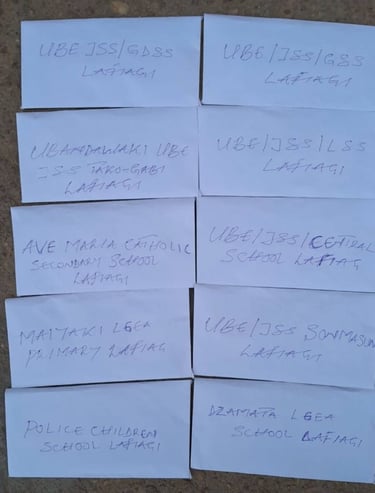 UBE JSS/GDSS
LAFIAGI
UBE/JSS/GSS
LAFIAGI
UBANDAWAKI UBE
JSS TAKO-GABI
LAFIAGI
UBE/JSS/LSS
LAFIAGI
AVE MARIA CATHOLIC
SECONDARY SCHOOL
LAFIAGI
UBE/JSS/CENTRAL
SCHOOL LAFIAG
MAIYAKI LGEA
PRIMARY LAFIAG
UBE/JSS SONMASUN
LAFIAGI
POLICE CHILDREN
SCHOOL LAFIAGI
DZAMATA LGEA
SCHOOL LAFIAGI